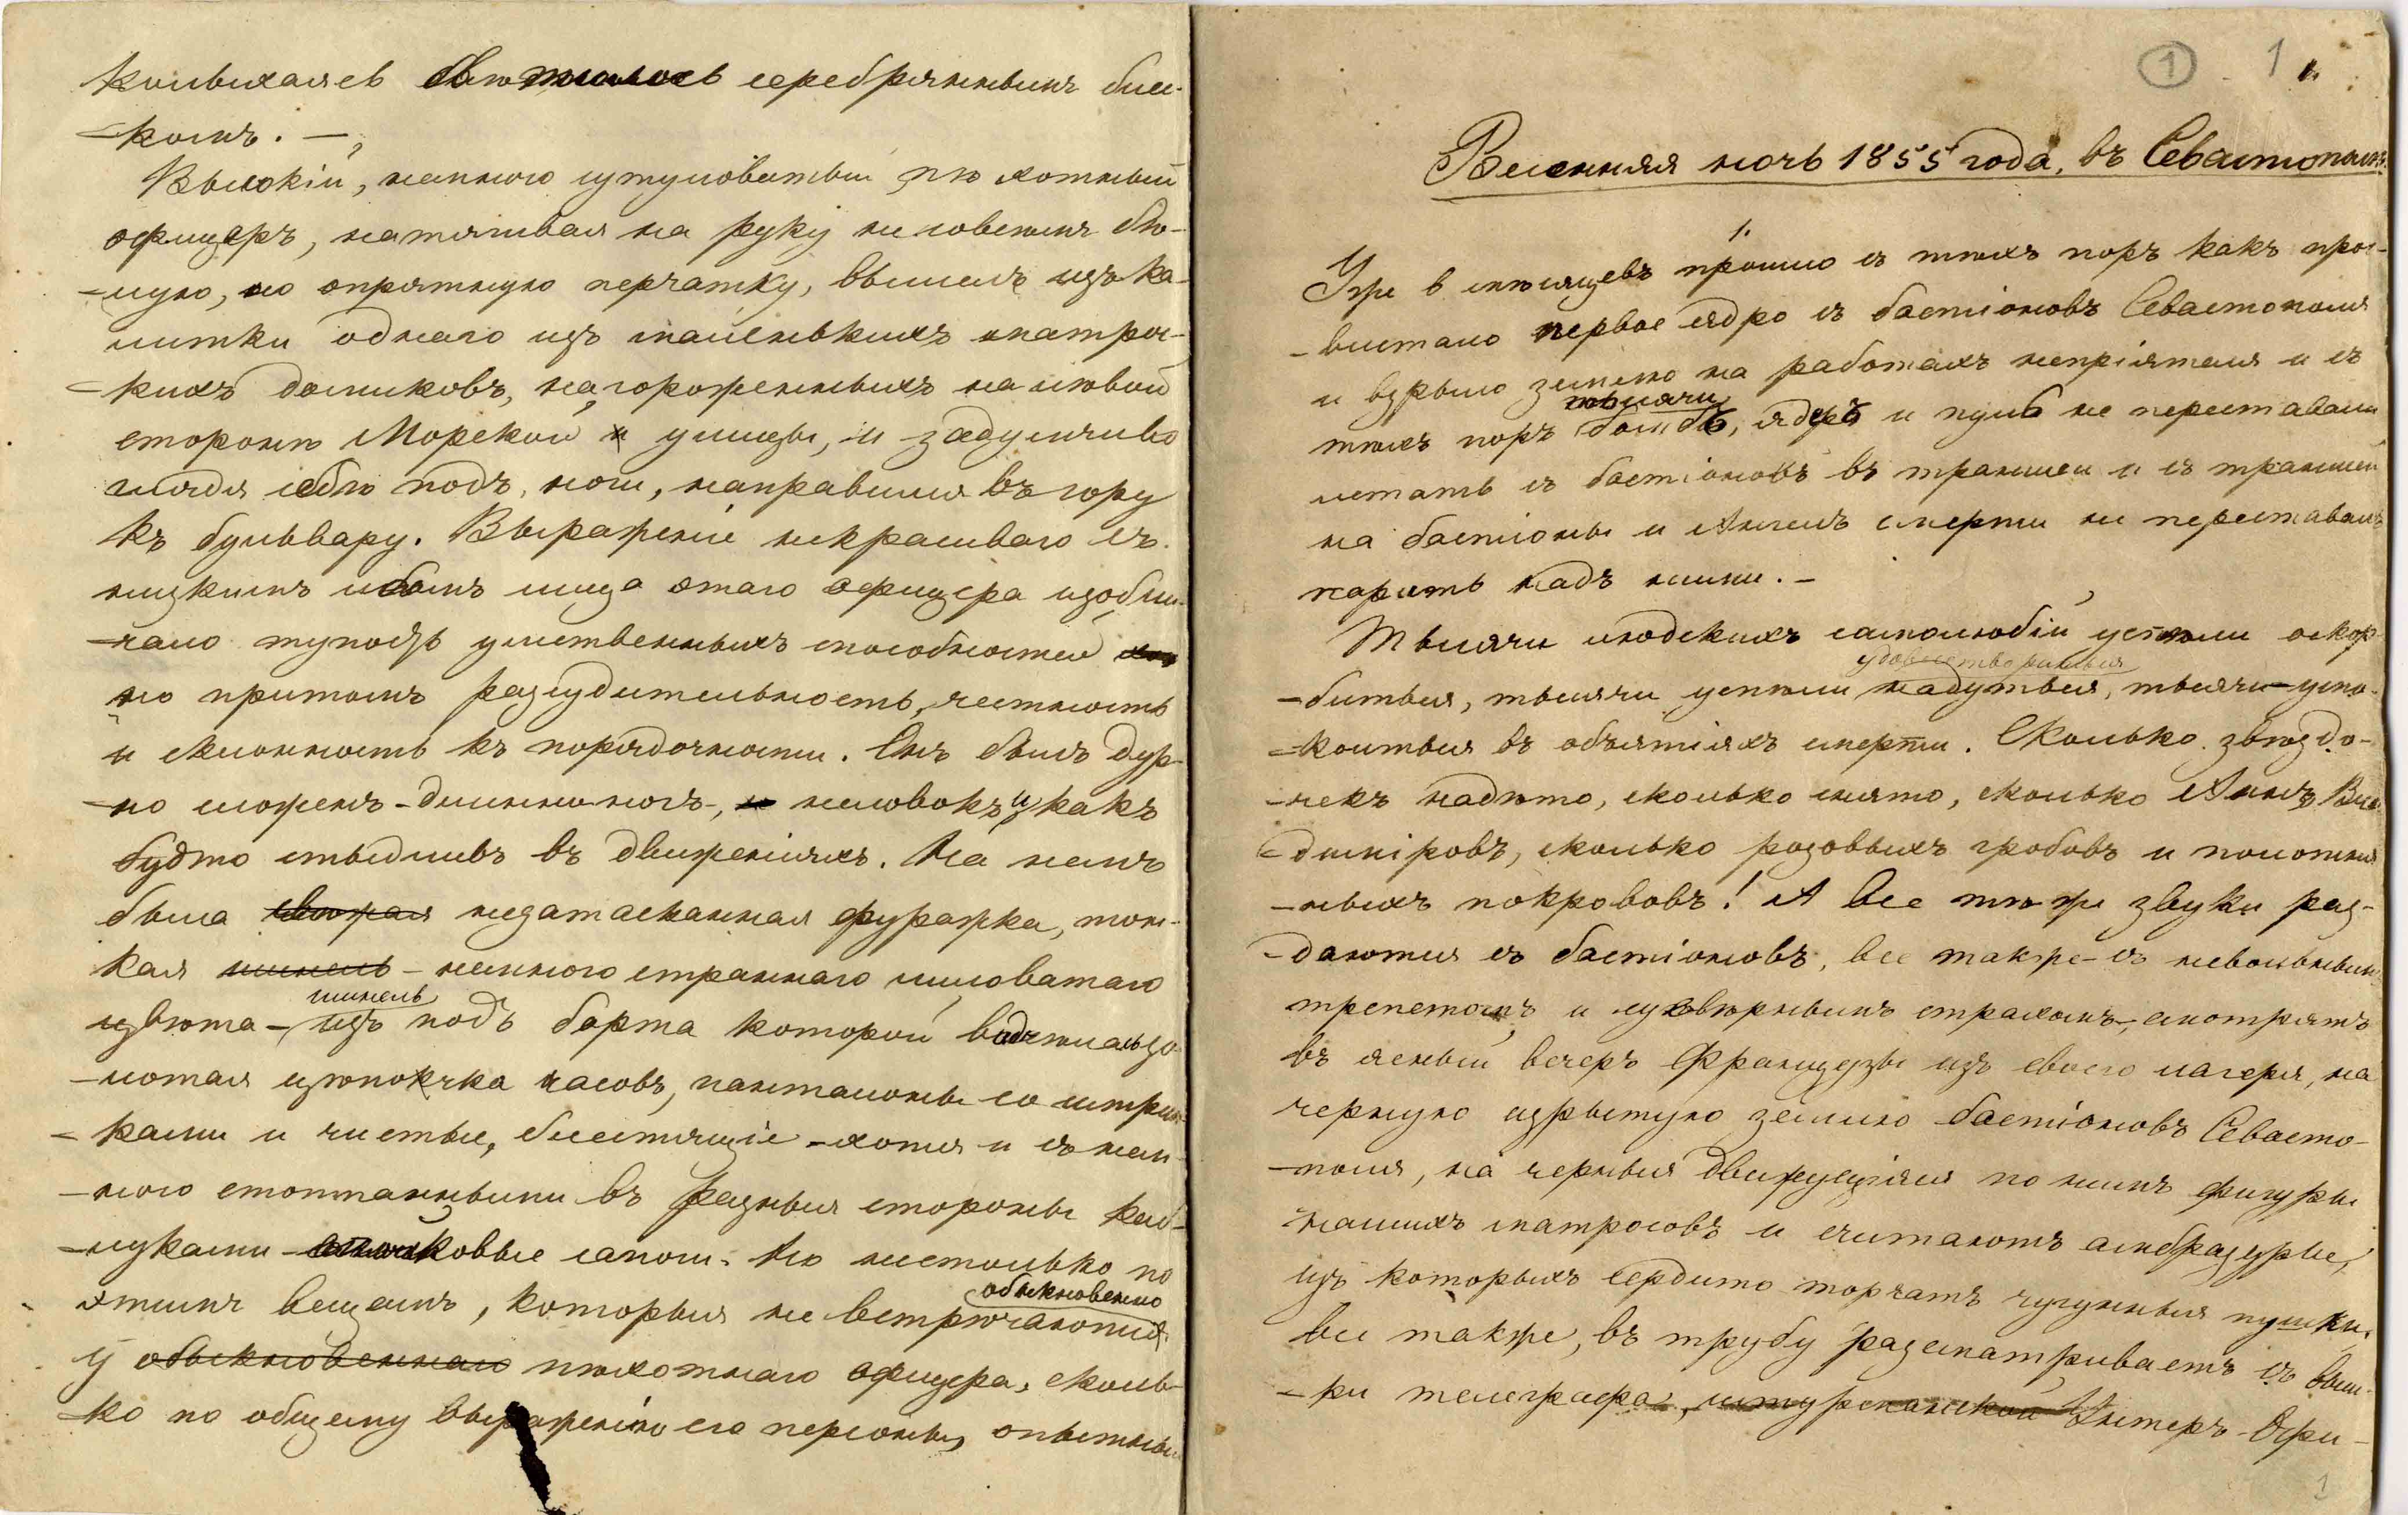 колыхаясь свѣтилось серебряннымъ блес-
-комъ. —
Высокій, немного сутуловатый пѣхотный
офицеръ, натягивая на руку не совсѣмъ бѣ-
-лую, но опрятную перчатку, вышелъ изъ ка-
литки одного изъ маленькихъ матрос-
-кихъ домиковъ, нагороженныхъ на лѣвой
сторонѣ Морской улицы, и задумчиво
глядя себѣ подъ ноги, направился въ гору
къ бульвару. Выраженіе некрасиваго съ
низкимъ лбомъ лица этаго офицера изобли-
-чало тупость умственныхъ способностей
но притомъ разсудительность, честность
и склонность къ порядочности. Онъ былъ дур-
-но сложенъ-длинноногъ, неловокъ и какъ
будто стыдливъ въ движеніяхъ. На немъ
была свѣжая незатасканная фуражка, тон-
кая шинель - немного страннаго лиловатаго
шинель
цвѣта - изъ подъ борта которой виднѣлась зо-
-лотая цѣпочка часовъ, панталоны со штрип-
-ками и чистые, блестящіе - хотя и съ нем-
-ного стоптанными въ разныя стороны каб-
-луками - опойковые сапоги. Но не столько по
обыкновенно
этимъ вещамъ, которыя не встрѣчаются
у обыкновеннаго пѣхотнаго офицера, сколь-
-ко по общему выраженію его персоны, опытный
1 1
Весенняя ночь 1855 года, въ Севастополѣ.
1.
Уже 6 мѣсяцевъ прошло съ тѣхъ поръ какъ прос-
-вистало первое ядро съ бастіоновъ Севастополя
и взрыло землю на работахъ непріятеля и съ
тысячи
тѣхъ поръ бомбъ, ядеръ и пуль не переставали
летать съ бастіоновъ въ траншеи и съ траншей
на бастіоны и Ангелъ смерти не переставалъ
парить надъ ними. —
Тысячи людскихъ самолюбій успѣли оскор-
удовлетвориться
-биться, тысячи успѣли надуться, тысячи - успо-
-коиться въ объятіяхъ смерти. Сколько звѣздо-
-чекъ надѣто, сколько снято, сколько Аннъ, Вла-
-диміровъ, сколько розовыхъ гробовъ и полотня-
-ныхъ покрововъ! А все тѣ же звуки раз-
-даются съ бастіоновъ, все также - съ невольнымъ
трепетомъ и суевѣрнымъ страхомъ, смотрятъ
въ ясный вечеръ Французы изъ своего лагеря, на
черную изрытую землю бастіоновъ Севасто-
-поля, на черныя движущіяся по нимъ фигуры
нашихъ матросовъ и считаютъ амбразуры,
изъ которыхъ сердито торчатъ чугунныя пушки,
все также, въ трубу разсматриваетъ съ выш-
-ки телеграфа, штурманской Унтеръ-Офи-
1